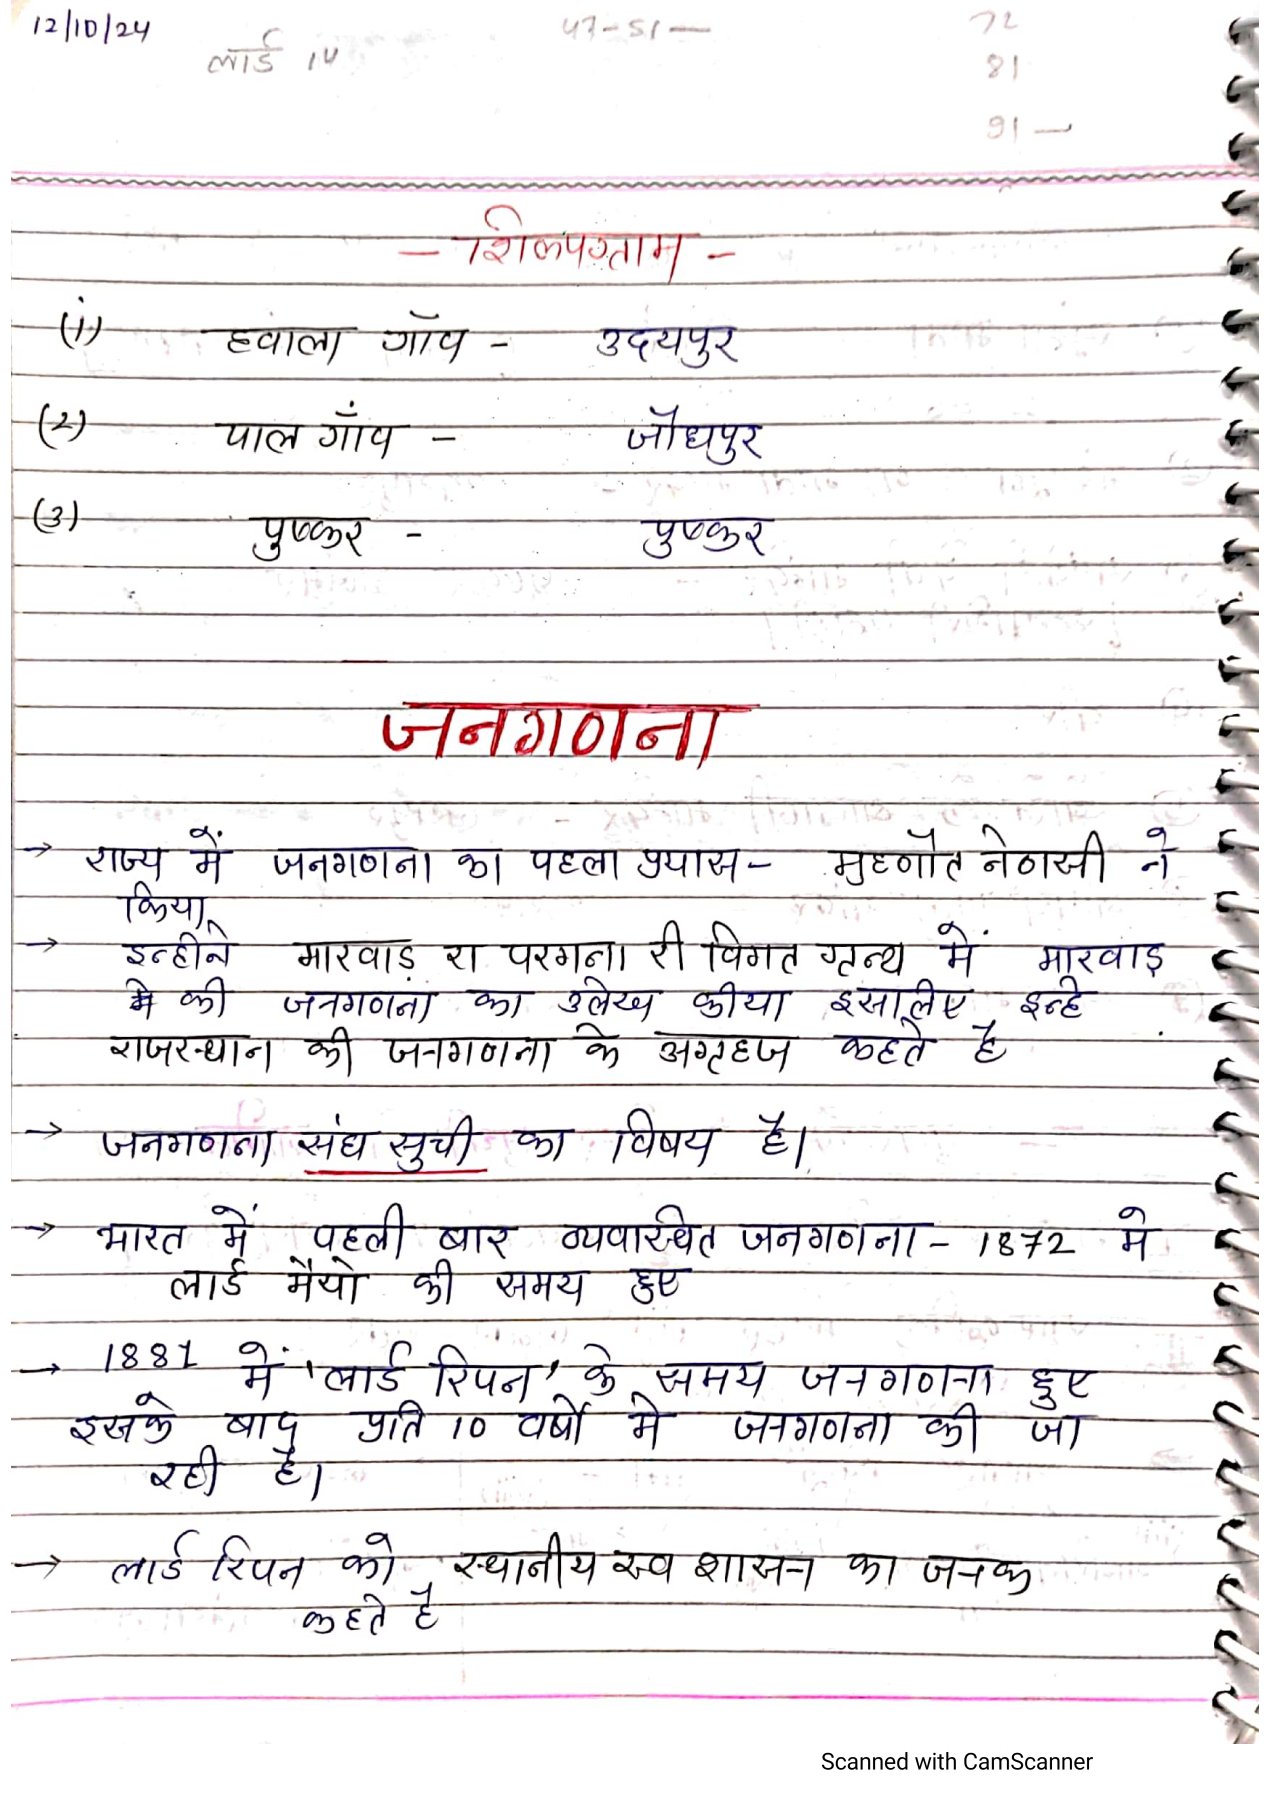 12/10/24
लार्ड 14
47-51 —
72
81
91 —
- शिल्पग्राम -
(1) हवाला गाँव - उदयपुर
(2) पाल गाँव - जौधपुर
(3) पुष्कर - पुष्कर
जनगणना
→ राज्य में जनगणना का पहला प्रयास - मुहणौत नेणसी ने
किया
→ इन्होने मारवाड़ रा परगना री विगत ग्रन्थ में मारवाड़
मे की जनगणना का उलेख कीया इसालीए इन्हे
राजस्थान की जनगणना के अग्रहज कहते है
→ जनगणना संघ सुची का विषय है।
→ भारत में पहली बार व्यवास्थित जनगणना - 1872 मे
लार्ड मैयो की समय हुए
→ 1881 में 'लार्ड रिपन' के समय जनगणना हुए
इसके बाद प्रति 10 वर्षो मे जनगणना की जा
रही है।
→ लार्ड रिपन को स्थानीय स्व शासन का जनक
कहते है
Scanned with CamScanner